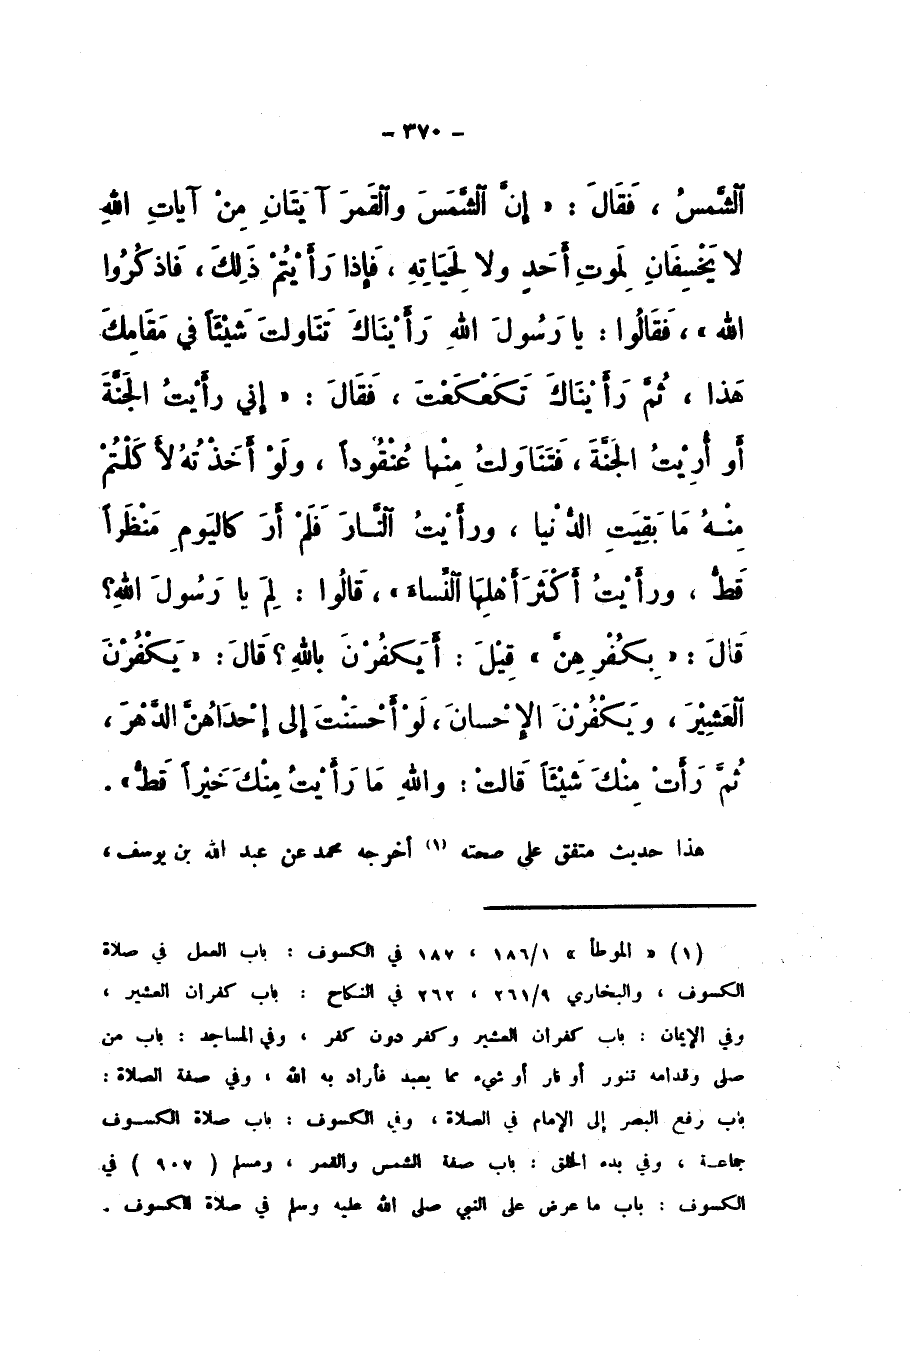 - ٣٧٠ -
ٱلشَّمْسُ ، فَقَالَ : « إِنَّ ٱلشَّمْسَ وٱلْقَمَرَ آيَتَانِ مِنْ آيَاتِ اللهِ
لا يَخْسِفَانِ لِمَوتِ أَحَدٍ ولا لِحَيَاتِهِ ، فَإِذا رَأَيْتُمْ ذَلِكَ ، فَاذكُرُوا
الله » ، فَقَالُوا : يا رَسُولَ اللهِ رَأَيْنَاكَ تَنَاولتَ شَيْئَاً في مَقَامِكَ
هَذا ، ثُمَّ رَأَيْنَاكَ تَكَعْكَعْتَ ، فَقَالَ : « إني رأَيْتُ الجَنَّةَ
أَو أُرِيْتُ الجَنَّةَ ، فَتَنَاوَلتُ مِنْها عُنْقُوداً ، ولَوْ أَخَذْتُهُ لأَكَلْتُمْ
مِنْهُ مَا بَقِيَتِ الدُّنْيا ، ورأَيْتُ ٱلنَّارَ فَلَمْ أَرَ كاليَومِ مَنْظَراً
قَطُّ ، ورأَيْتُ أَكْثَرَ أَهْلِهَا ٱلنِّساءَ » ، قَالُوا : لِمَ يا رَسُولَ اللهِ؟
قَالَ : « بِكُفْرِهِنَّ » قِيْلَ : أَيَكفُرْنَ باللهِ ؟ قَالَ : « يَكْفُرْنَ
ٱلْعَشِيْرَ ، ويَكْفُرْنَ الإِحْسانَ ، لَوْ أَحْسَنْتَ إلى إِحْدَاهُنَّ الدَّهْرَ ،
ثُمَّ رَأَتْ مِنْكَ شَيْئَاً قَالتْ : واللهِ مَا رَأَيْتُ مِنْكَ خَيْراً قَطُّ » .
هذا حديث متفق على صحته (١) أخرجه محمد عن عبد الله بن يوسف ،
(١) « الموطأ » ١٨٦/١ ، ١٨٧ في الكسوف : باب العمل في صلاة
الكسوف ، والبخاري ٢٦١/٩ ، ٢٦٢ في النكاح : باب كفران العشير ،
وفي الإيمان : باب كفران العشير وكفر دون كفر ، وفي المساجد : باب من
صلى وقدامه تنور أو نار أو شيء مما يعبد فأراد به الله ، وفي صفة الصلاة :
باب رفع البصر إلى الإمام في الصلاة ، وفي الكسوف : باب صلاة الكسوف
جماعة ، وفي بدء الخلق : باب صفة الشمس والقمر ، ومسلم ( ٩٠٧ ) في
الكسوف : باب ما عرض على النبي صلى الله عليه وسلم في صلاة الكسوف .